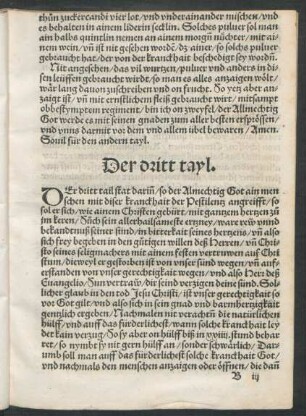 thun zuckercandi vier lot / vnd vndereinander mischen / vnd
es behalten in ainem liderin secklin. Solches puluer sol man
ain halbs quintlin nemen an ainem morgẽ nüchter / mit ai-
nem wein / vñ ist nit gesehen wordẽ / dz ainer / so solchs puluer
gebraucht hat / der von der kranckhait beschedigt sey wordẽ.
Nit angesehen / das vil wurtzen / puluer vnd anders in di-
sen leüffen gebraucht wirdt / so man es alles anzaigen wölt /
wär lang dauon zuschreiben vnd on frucht. So yez aber an-
zaigt ist / vñ mit ernstlichem fleis gebraucht wirt / mitsampt
obbestymptem regiment / bin ich on zweyfel / der Allmechtig
Got werde es mit seinen gnaden zum aller besten erspriessen /
vnd vnns darmit vor dem vnd allem übel bewaren / Amen.
Souil für den andern tayl.
Der dritt tayl.
DEr dritt tail stat darin / so der Almechtig Got ain men
schen mit diser kranckhait der Pestilentz angreifft / so
sol er sich / wie ainem Christen gebürt / mit gantzem hertzen zů
im keren / Such sein allerhailsameste ertzney / ware rew vnnd
bekandtnuß seiner sünd / in bitterkait seines hertzens / vñ also
sich frey begeben in den gütigen willen deß Herren / vñ Chri-
sto seines seligmachers mit ainem festen vertrawen auf Chri-
stum / die weyl er gestorben ist von vnser sünd wegen / vñ auff-
erstanden von vnser gerechtigkait wegen / vnd also Herr deß
Euangelio / Im vertraw / dir seind verzigen deine sünd. Sol-
licher glaub in den tod Jesu Christi / ist vnser gerechtigkait so
vor Got gilt / vnd also sich in sein gnad vnd barmhertzigkait
gentzlich ergeben / Nachmalen nit verachtñ die natürlichen
hülff / vnd auff das fürderlichest / wann solche kranckhait ley-
det kain verzug / So sy aber on hülff biß in xxiiij. stund behar
ret / so nymbt sy nit gern hülff an / sonder schwärlich / Dar-
umb soll man auff das fürderlichest solche kranckhait Got /
vnd nachmals den menschen anzaigen oder öffnen / die dañ
B iij